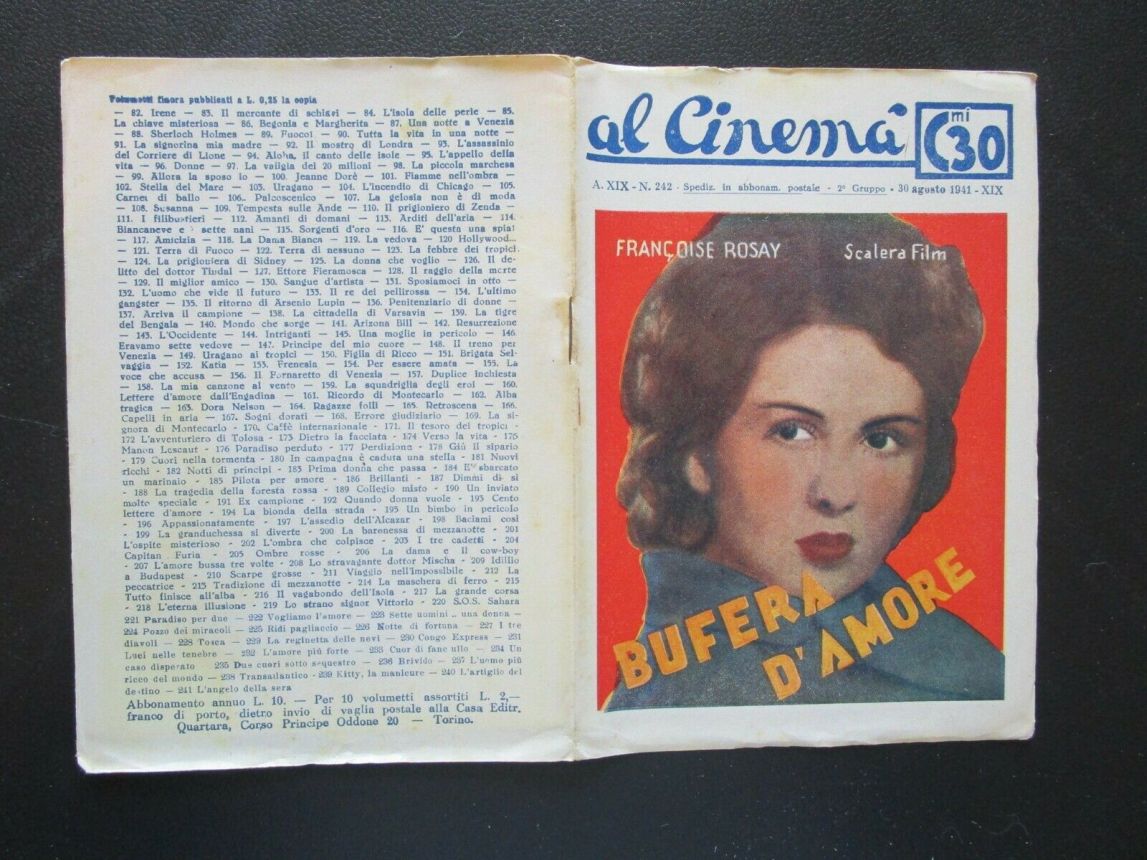 Volumetti finora pubblicati a L. 0,25 la copia
— 82. Irene — 83. Il mercante di schiavi — 84. L'isola delle perle — 85.
La chiave misteriosa — 86. Begonia e Margherita — 87. Una notte a Venezia
— 88. Sherloch Holmes — 89. Fuoco! — 90. Tutta la vita in una notte —
91. La signorina mia madre — 92. Il mostro di Londra — 93. L'assassinio
del Corriere di Lione — 94. Aloha, il canto delle isole — 95. L'appello della
vita — 96. Donne — 97. La valigia dei 20 milioni — 98. La piccola marchesa
— 99. Allora la sposo io — 100. Jeanne Dorè — 101. Fiamme nell'ombra —
102. Stella del Mare — 103. Uragano — 104. L'incendio di Chicago — 105.
Carnet di ballo — 106. Palcoscenico — 107. La gelosia non è di moda
— 108. Susanna — 109. Tempesta sulle Ande — 110. Il prigioniero di Zenda —
111. I filibustieri — 112. Amanti di domani — 113. Arditi dell'aria — 114.
Biancaneve e sette nani — 115. Sorgenti d'oro — 116. E' questa una spia!
— 117. Amicizia — 118. La Dama Bianca — 119. La vedova — 120 Hollywood...
— 121. Terra di Fuoco — 122. Terra di nessuno — 123. La febbre dei tropici.
— 124. La prigioniera di Sidney — 125. La donna che voglio — 126. Il de-
litto del dottor Tindal — 127. Ettore Fieramosca — 128. Il raggio della morte
— 129. Il miglior amico — 130. Sangue d'artista — 131. Sposiamoci in otto —
132. L'uomo che vide il futuro — 133. Il re dei pellirossa — 134. L'ultimo
gangster — 135. Il ritorno di Arsenio Lupin — 136. Penitenziario di donne —
137. Arriva il campione — 138. La cittadella di Varsavia — 139. La tigre
del Bengala — 140. Mondo che sorge — 141. Arizona Bill — 142. Resurrezione
— 143. L'Occidente — 144. Intriganti — 145. Una moglie in pericolo — 146.
Eravamo sette vedove — 147. Principe del mio cuore — 148. Il treno per
Venezia — 149. Uragano ai tropici — 150. Figlia di Ricco — 151. Brigata Sel-
vaggia — 152. Katia — 153. Frenesia — 154. Per essere amata — 155. La
voce che accusa — 156. Il Fornaretto di Venezia — 157. Duplice inchiesta
— 158. La mia canzone al vento — 159. La squadriglia degli eroi — 160.
Lettere d'amore dall'Engadina — 161. Ricordo di Montecarlo — 162. Alba
tragica — 163. Dora Nelson — 164. Ragazze folli — 165. Retroscena — 166.
Capelli in aria — 167. Sogni dorati — 168. Errore giudiziario — 169. La si-
gnora di Montecarlo — 170. Caffè internazionale — 171. Il tesoro dei tropici -
172 L'avventuriero di Tolosa - 173 Dietro la facciata - 174 Verso la vita - 175
Manon Lescaut - 176 Paradiso perduto - 177 Perdizione - 178 Giù il sipario
- 179 Cuori nella tormenta - 180 In campagna è caduta una stella - 181 Nuovi
ricchi - 182 Notti di principi - 183 Prima donna che passa - 184 E' sbarcato
un marinaio - 185 Pilota per amore - 186 Brillanti - 187 Dimmi di si
- 188 La tragedia della foresta rossa - 189 Collegio misto - 190 Un inviato
molto speciale - 191 Ex campione - 192 Quando donna vuole - 193 Cento
lettere d'amore - 194 La bionda della strada - 195 Un bimbo in pericolo
- 196 Appassionatamente - 197 L'assedio dell'Alcazar - 198 Baciami così
- 199 La granduchessa si diverte - 200 La baronessa di mezzanotte - 201
L'ospite misterioso - 202 L'ombra che colpisce - 203 I tre cadetti - 204
Capitan Furia - 205 Ombre rosse - 206 La dama e il cow-boy
- 207 L'amore bussa tre volte - 208 Lo stravagante dottor Mischa - 209 Idillio
a Budapest - 210 Scarpe grosse - 211 Viaggio nell'impossibile - 212 La
peccatrice - 213 Tradizione di mezzanotte - 214 La maschera di ferro - 215
Tutto finisce all'alba - 216 Il vagabondo dell'Isola - 217 La grande corsa
- 218 L'eterna illusione - 219 Lo strano signor Vittorio - 220 S.O.S. Sahara
221 Paradiso per due — 222 Vogliamo l'amore — 223 Sette uomini .. una donna —
224 Pozzo dei miracoli — 225 Ridi pagliaccio — 226 Notte di fortuna — 227 I tre
diavoli — 228 Tosca — 229 La reginetta delle nevi — 230 Congo Express — 231
Luci nelle tenebre — 232 L'amore più forte — 233 Cuor di fanciullo — 234 Un
caso disperato 235 Due cuori sotto sequestro — 236 Brivido — 237 L'uomo più
ricco del mondo — 238 Transatlantico - 239 Kitty, la manicure — 240 L'artiglio del
destino — 241 L'angelo della sera
Abbonamento annuo L. 10. — Per 10 volumetti assortiti L. 2,—
franco di porto, dietro invio di vaglia postale alla Casa Editr.
Quartara, Corso Principe Oddone 20 — Torino.
al Cinemà
Cmi 30
A. XIX - N. 242 - Spediz. in abbonam. postale - 2° Gruppo - 30 agosto 1941 - XIX
FRANÇOISE ROSAY Scalera Film
BUFERA
D'AMORE